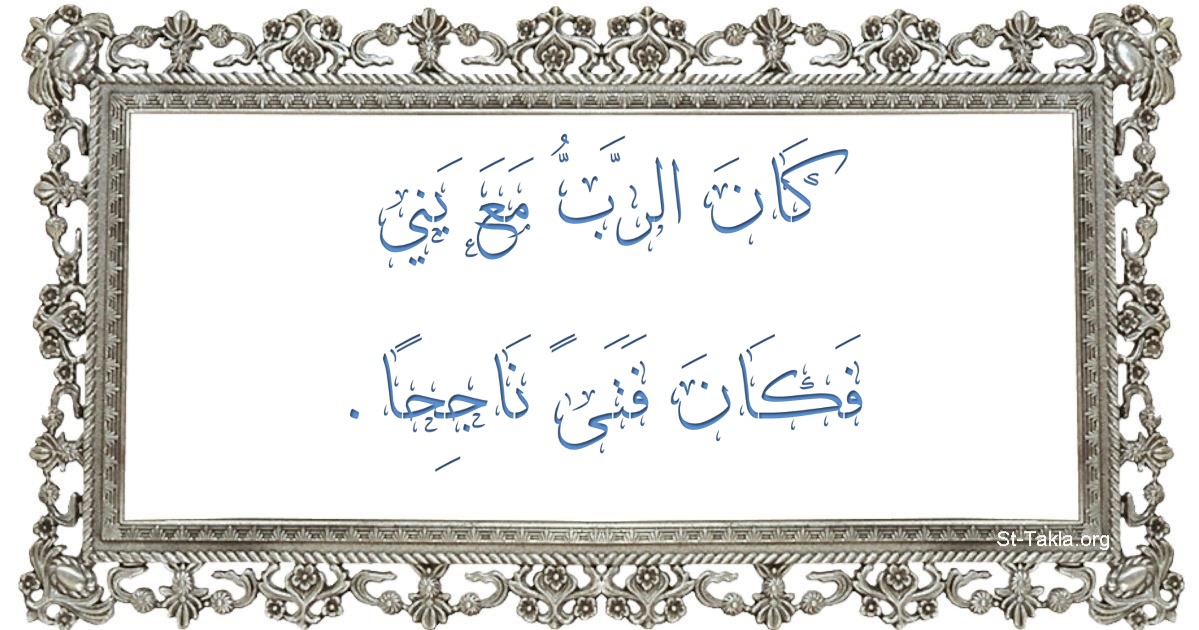 كَانَ الرَّبُّ مَعَ يَنِي
فَكَانَ فَتَىً نَاجِحًا .
St-Takla.org